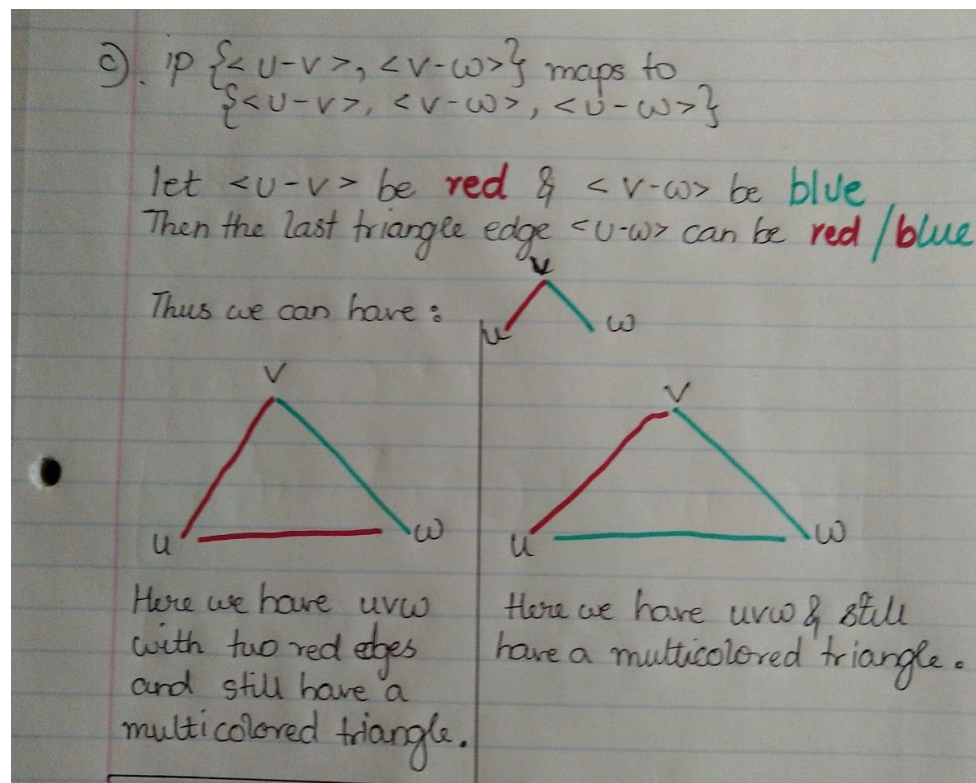 c). ip {<u-v>, <v-w>} maps to
{<u-v>, <v-w>, <u-w>}
let <u-v> be red & <v-w> be blue
Then the last triangle edge <u-w> can be red/blue
Thus we can have:
v
u
w
v
u
w
v
u
w
Here we have uvw
with two red edges
and still have a
multicolored triangle.
Here we have uvw & still
have a multicolored triangle.